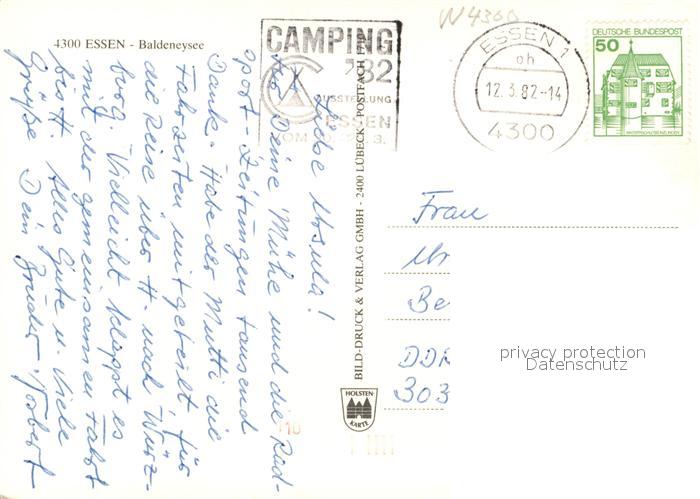 4300 ESSEN - Baldeneysee
CAMPING
'82
AUSSTELLUNG
ESSEN
VOM
3.
W4300
ESSEN 1
ah
12.3.82-14
4300
DEUTSCHE BUNDESPOST
50
WASSERSCHLOSS INZLINGEN
Liebe Ursula!
Für Deine Mühe und die Rad-
sport-Zeitungen tausend
Dank. Habe der Mutti die
Fahrzeiten mitgeteilt, für
die Reise über H. nach Würz-
burg. Vielleicht klappt es
mit der gemeinsamen Fahrt
bis H. Alles Gute u. Viele
Grüße Dein Bruder Norbert
BILD-DRUCK & VERLAG GMBH - 2400 LÜBECK - POSTFACH
HOLSTEN-
KARTE
Frau
Ur
Be
DDR
303
privacy protection
Datenschutz